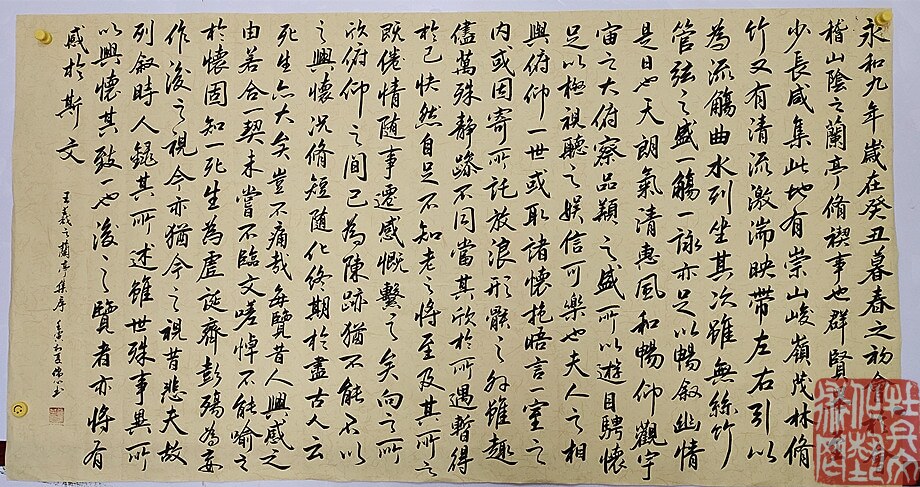 永和九年歲在癸丑暮春之初會
稽山陰之蘭亭脩禊事也群賢
少長咸集此地有崇山峻嶺茂林脩
竹又有清流激湍映帶左右引以
為流觴曲水列坐其次雖無絲竹
管弦之盛一觴一詠亦足以暢敘幽情
是日也天朗氣清惠風和暢仰觀宇
宙之大俯察品類之盛所以遊目騁懷
足以極視聽之娛信可樂也夫人之相
與俯仰一世或取諸懷抱晤言一室之
內或因寄所託放浪形骸之外雖趣
儘萬殊靜躁不同當其欣於所遇暫得
於己快然自足不知老之將至及其所之
既倦情隨事遷感慨繫之矣向之所
欣俯仰之間已為陳跡猶不能不以
之興懷況脩短隨化終期於盡古人云
死生亦大矣豈不痛哉每覽昔人興感之
由若合一契未嘗不臨文嗟悼不能喻之
於懷固知一死生為虛誕齊彭殤為妄
作後之視今亦猶今之視昔悲夫故
列敘時人錄其所述雖世殊事異所
以興懷其致一也後之覽者亦將有
感於斯文
王羲之蘭亭集序